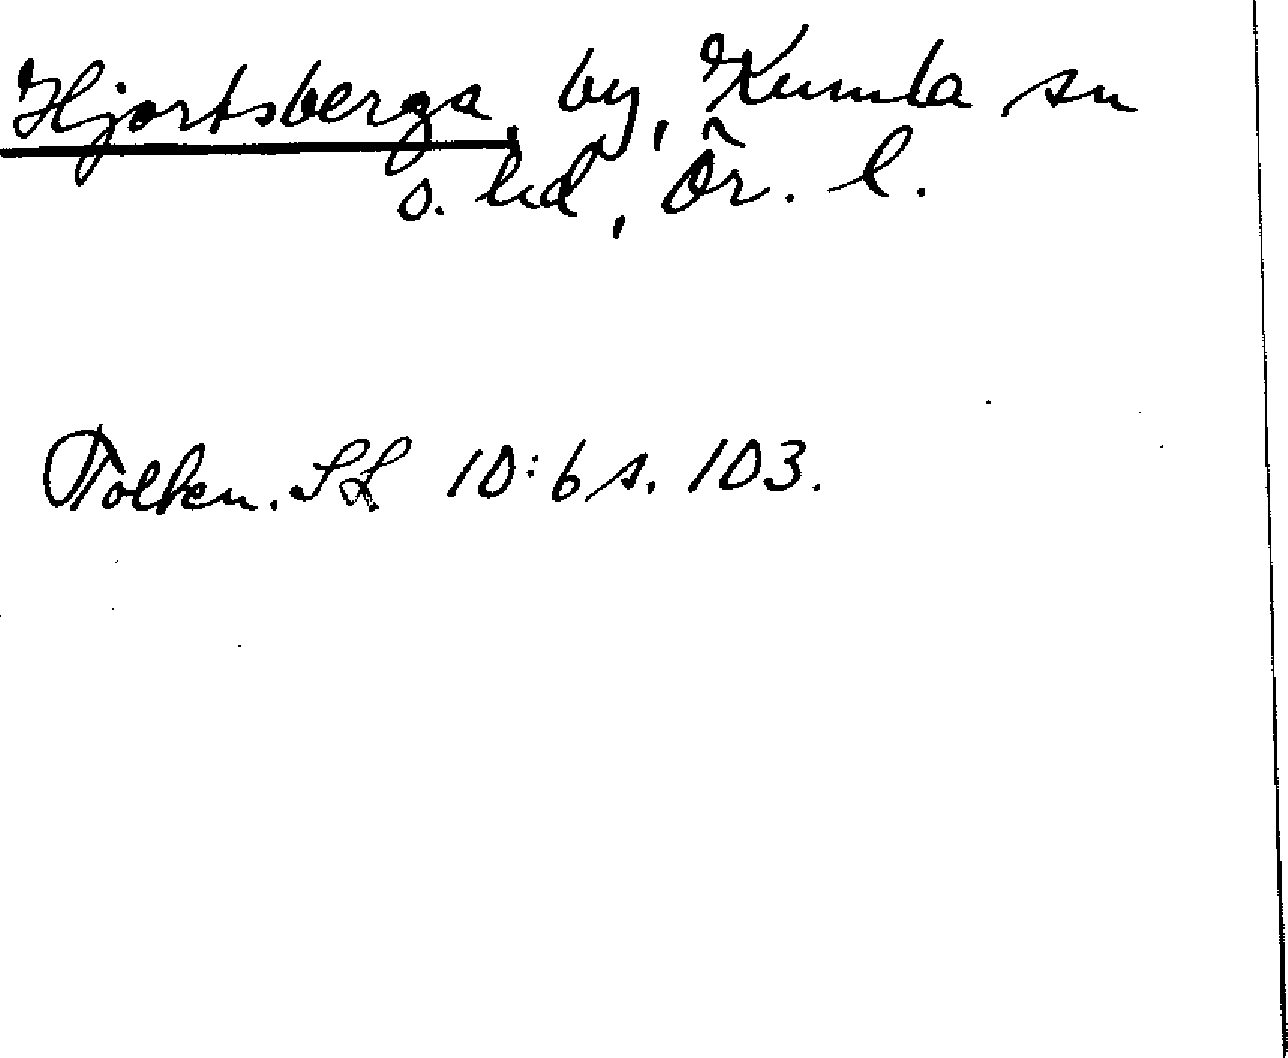 Hjortsberga, by, Kumla sn
o. hd, Ör. l.
Tolken. SL 10:6 s. 103.